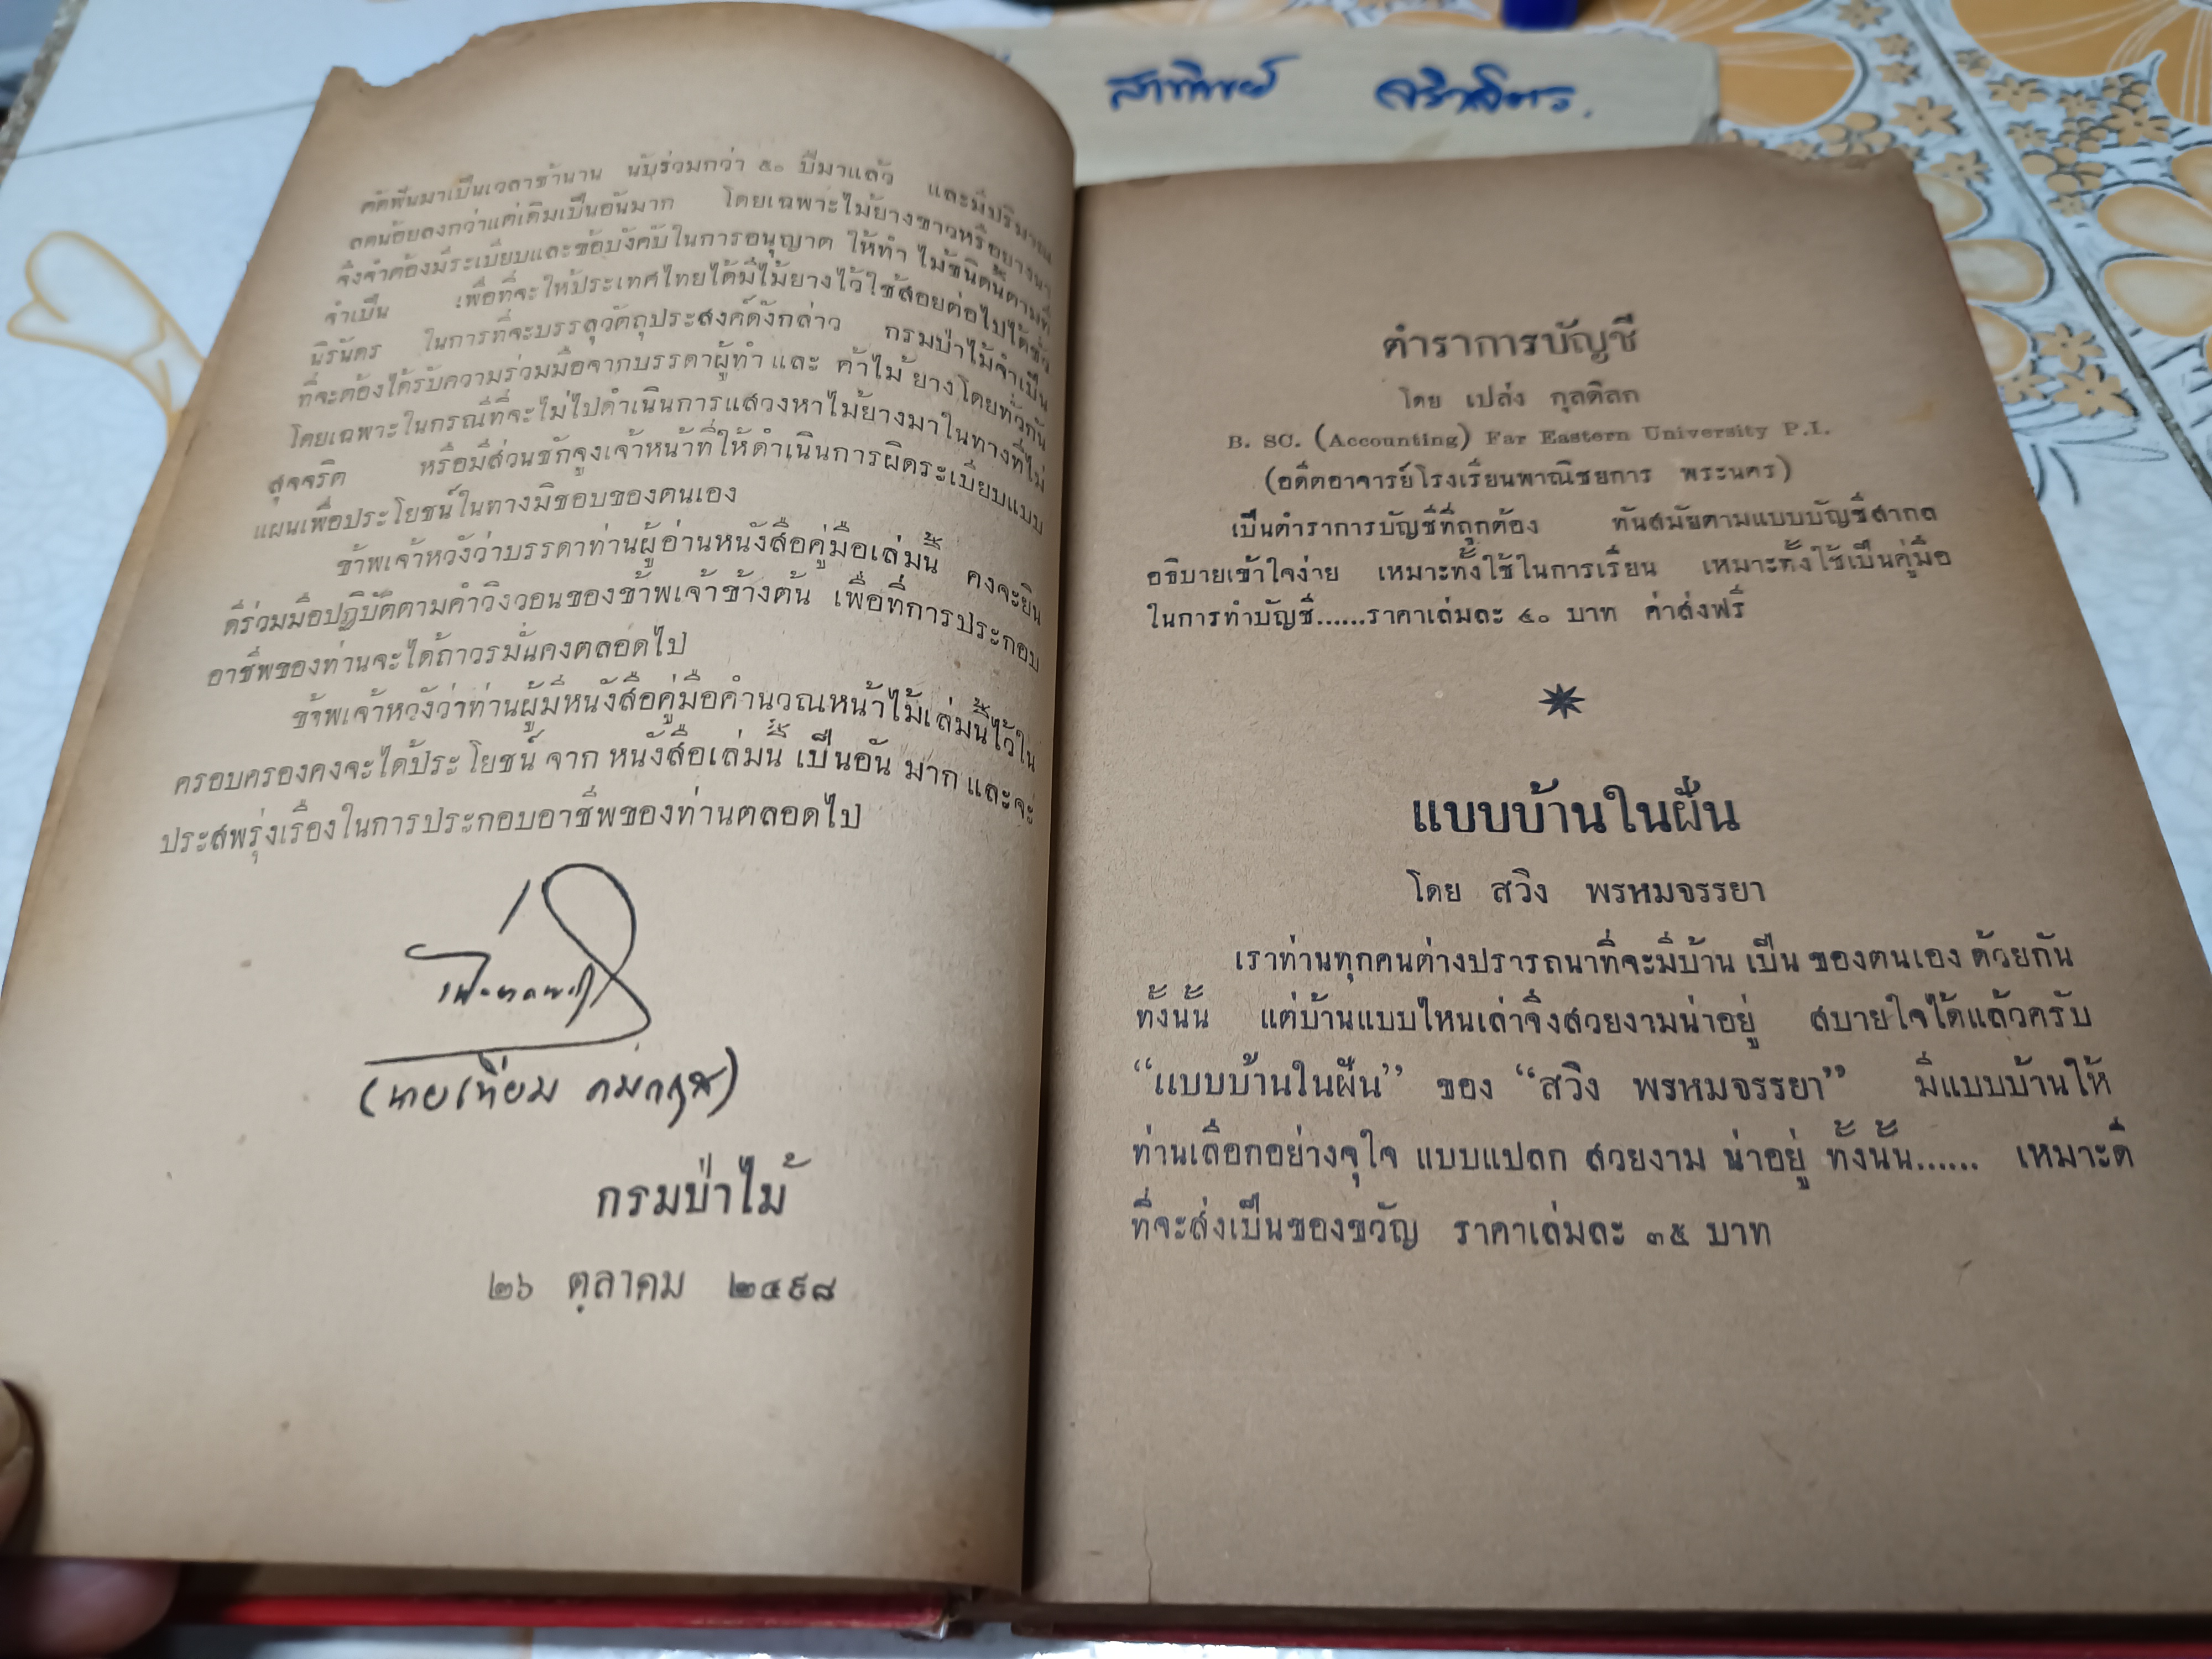 คัดฟันมาเป็นเวลาช้านาน นับร่วมกว่า ๕๐ ปีมาแล้ว และมีปริมาณ
ลดน้อยลงกว่าแต่เดิมเป็นอันมาก โดยเฉพาะไม้ยางขาวหรือยางนา
จึงจำต้องมีระเบียบและข้อบังคับในการอนุญาต ให้ทำ ไม้ชนิดนี้ตามที่
จำเป็น เพื่อที่จะให้ประเทศไทยได้มีไม้ยางไว้ใช้สอยต่อไปได้ชั่ว
นิรันดร ในการที่จะบรรลุวัตถุประสงค์ดังกล่าว กรมป่าไม้จำเป็น
ที่จะต้องได้รับความร่วมมือจากบรรดาผู้ทำ และ ค้าไม้ ยางโดยทั่วกัน
โดยเฉพาะในกรณีที่จะไม่ไปดำเนินการแสวงหาไม้ยางมาในทางที่ไม่
สุจจริต หรือมีส่วนชักจูงเจ้าหน้าที่ให้ดำเนินการผิดระเบียบแบบ
แผนเพื่อประโยชน์ในทางมิชอบของตนเอง
ข้าพเจ้าหวังว่าบรรดาท่านผู้อ่านหนังสือคู่มือเล่มนี้ คงจะยิน
ดีร่วมมือปฏิบัติตามคำวิงวอนของข้าพเจ้าข้างต้น เพื่อที่การประกอบ
อาชีพของท่านจะได้ถาวรมั่นคงตลอดไป
ข้าพเจ้าหวังว่าท่านผู้มีหนังสือคู่มือคำนวณหน้าไม้เล่มนี้ไว้ใน
ครอบครองคงจะได้ประโยชน์ จาก หนังสือเล่มนี้ เป็นอัน มาก และจะ
ประสพรุ่งเรืองในการประกอบอาชีพของท่านตลอดไป
(นายเทียม คมกฤส)
กรมป่าไม้
๒๖ ตุลาคม ๒๔๙๘
ตำราการบัญชี
โดย เปล่ง กุลดิลก
B. SC. (Accounting) Far Eastern University P.I.
(อดีตอาจารย์โรงเรียนพาณิชยการ พระนคร)
เป็นตำราการบัญชีที่ถูกต้อง ทันสมัยตามแบบบัญชีสากล
อธิบายเข้าใจง่าย เหมาะทั้งใช้ในการเรียน เหมาะทั้งใช้เป็นคู่มือ
ในการทำบัญชี......ราคาเล่มละ ๔๐ บาท ค่าส่งฟรี
แบบบ้านในฝัน
โดย สวิง พรหมจรรยา
เราท่านทุกคนต่างปรารถนาที่จะมีบ้าน เป็น ของตนเอง ด้วยกัน
ทั้งนั้น แต่บ้านแบบไหนเล่าจึงสวยงามน่าอยู่ สบายใจได้แล้วครับ
“แบบบ้านในฝัน” ของ “สวิง พรหมจรรยา” มีแบบบ้านให้
ท่านเลือกอย่างจุใจ แบบแปลก สวยงาม น่าอยู่ ทั้งนั้น...... เหมาะดี
ที่จะส่งเป็นของขวัญ ราคาเล่มละ ๓๕ บาท